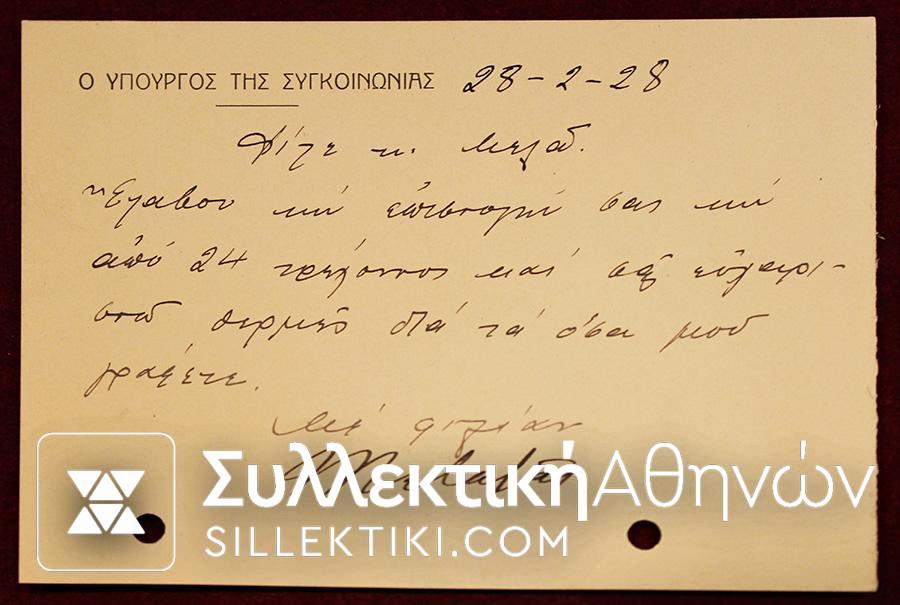 Ο ΥΠΟΥΡΓΟΣ ΤΗΣ ΣΥΓΚΟΙΝΩΝΙΑΣ 28-2-28
Φίλε κ. Μελᾶ.
Ἔλαβον τὴν ἐπιστολήν σας τὴν
ἀπό 24 τρέχοντος καὶ σᾶς εὐχαρι-
στῶ θερμῶς διά τά ὅσα μοῦ
γράφετε.
Μέ φιλίαν
Συλλεκτική Αθηνών
SILLEKTIKI.COM